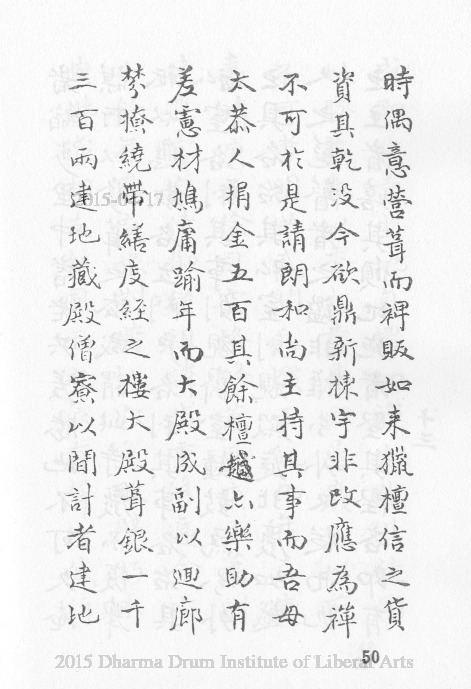 時偶意營葺而裨販如来獵檀信之貨
資其乾没今欲鼎新棟宇非改應為禅
不可於是請朗和尚主持其事而吾母
太恭人捐金五百其餘檀越六樂助有
差憲材鳩庸踰年而大殿成副以迴廊
棼橑繞帶繕庋經之樓大殿葺銀一千
三百兩建地藏殿僧寮以間計者建地
50
2015 Dharma Drum Institute of Liberal Arts